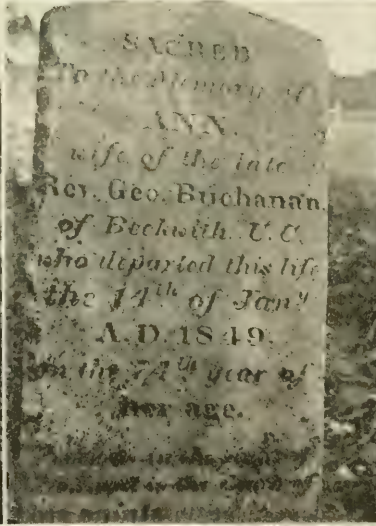 SACRED
To the Memory of
ANN.
wife of the late
Rev. Geo. Buchanan.
of Beckwith U.C.
who departed this life
the 14th of Jany
A.D. 1849.
In the year of
her age.
in the
in the of